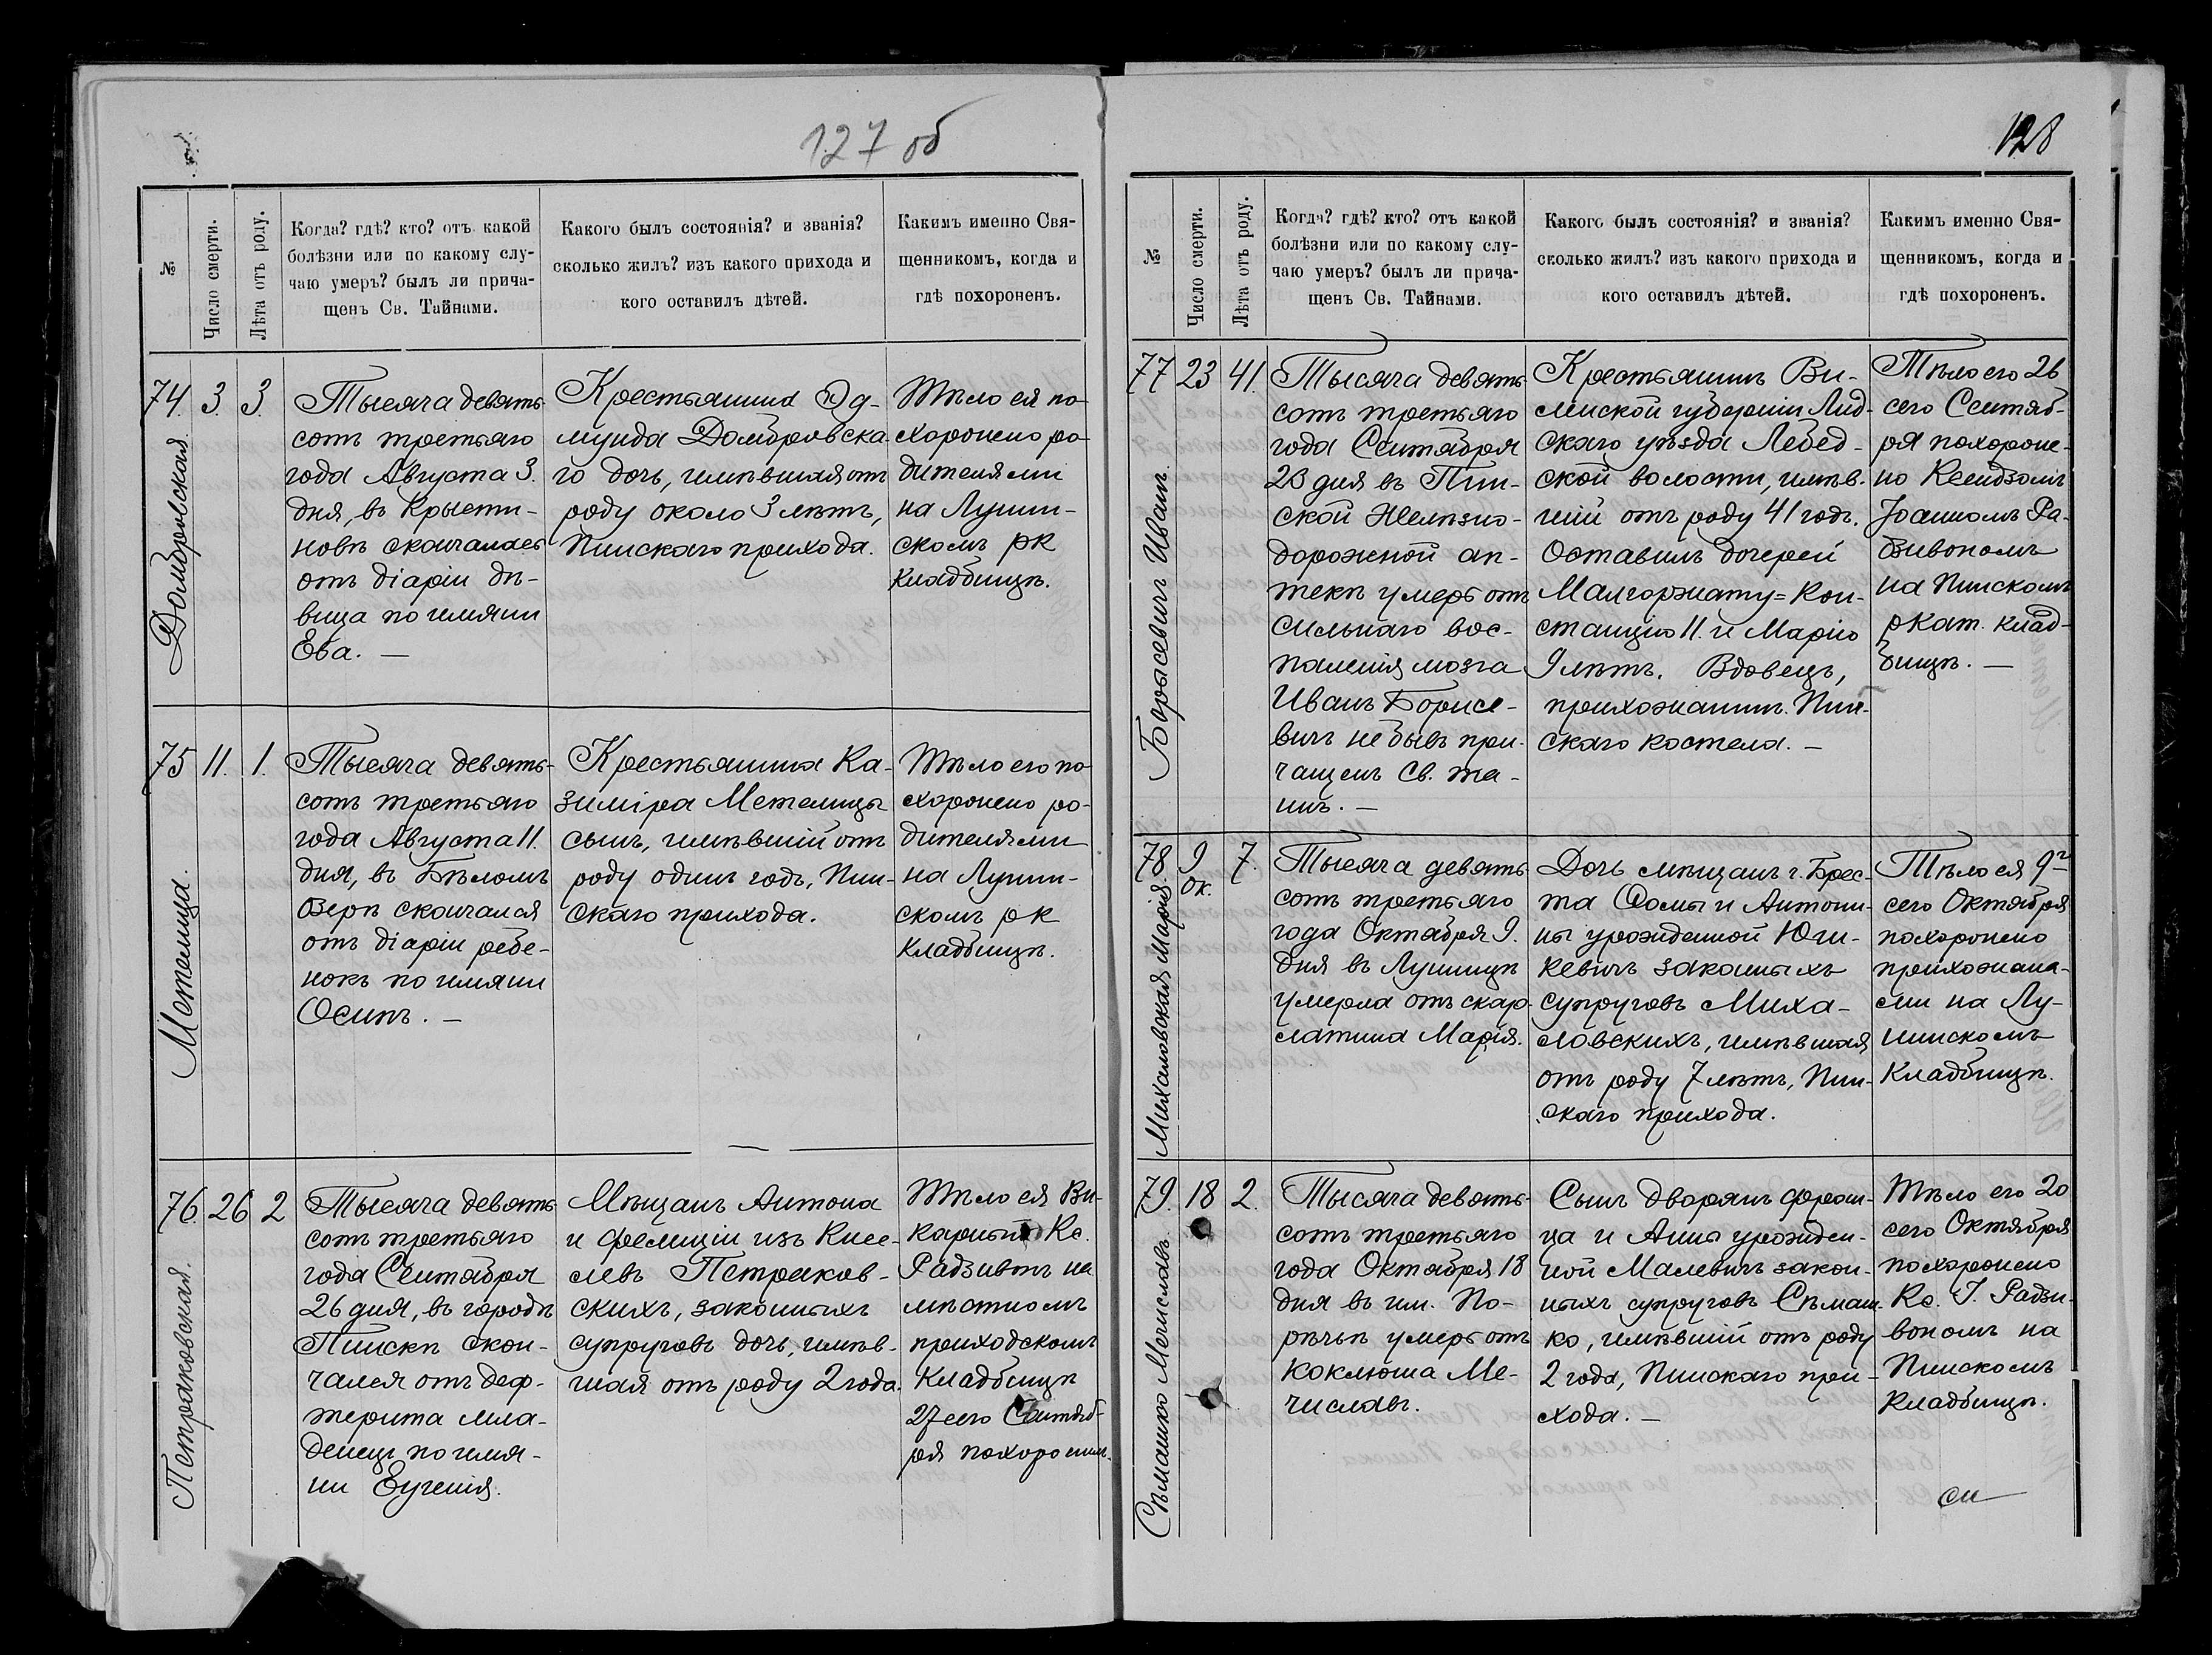 127 об
№
Число смерти.
Лѣта отъ роду.
Когда? гдѣ? кто? отъ какой
болѣзни или по какому слу-
чаю умеръ? былъ ли прича-
щенъ Св. Тайнами.
Какого былъ состоянія? и званія?
сколько жилъ? изъ какого прихода и
кого оставилъ дѣтей.
Какимъ именно Свя-
щенникомъ, когда и
гдѣ похороненъ.
74. 3. 3.
Домбровская
Тысяча девять-
сотъ третьяго
года Августа 3.
дня, въ Крысти-
новѣ скончалась
отъ діаріи дѣ-
вица по имяни
Ева. —
Крестьянина Эд-
мунда Домбровска-
го дочь, имѣвшая отъ
роду около 3 лѣтъ,
Пинскаго прихода.
Тѣло ея по-
хоронено ро-
дителями
на Лунин-
скомъ рк
кладбищѣ.
75 11. 1.
Метелица.
Тысяча девять-
сотъ третьяго
года Августа 11.
дня, въ Бѣломъ
Озерѣ скончался
отъ діаріи ребе-
нокъ по имяни
Осипъ. —
Крестьянина Ка-
зиміра Метелицы
сынъ, имѣвшій отъ
роду одинъ годъ, Пин-
скаго прихода.
Тѣло его по-
хоронено ро-
дителями
на Лунин-
скомъ рк
кладбищѣ.
76. 26 2
Петраковская.
Тысяча девять-
сотъ третьяго
года Сентября
26 дня, въ городѣ
Пинскѣ скон-
чался отъ диф-
терита мла-
денецъ по имя-
ни Евгенія.
Мѣщанъ Антона
и Фелиціи изъ Кисе-
левъ Петраков-
скихъ, законныхъ
супруговъ дочь, имѣв-
шая отъ роду 2 года.
Тѣло ея Ви-
карный Кс.
Радзивонъ на
мѣстномъ
приходскомъ
кладбищѣ
27 сего Сентяб-
ря похоронилъ.
128
№
Число смерти.
Лѣта отъ роду.
Когда? гдѣ? кто? отъ какой
болѣзни или по какому слу-
чаю умеръ? былъ ли прича-
щенъ Св. Тайнами.
Какого былъ состоянія? и званія?
сколько жилъ? изъ какого прихода и
кого оставилъ дѣтей.
Какимъ именно Свя-
щенникомъ, когда и
гдѣ похороненъ.
77 23 41.
Борысевичъ Иванъ
Тысяча девять-
сотъ третьяго
года Сентября
23 дня въ Пин-
ской Желѣзно-
дорожной ап-
текѣ умеръ отъ
сильнаго вос-
паленія мозга
Иванъ Борисе-
вичъ не бывъ при-
чащенъ Св. та-
инъ. —
Крестьянинъ Ви-
ленской губерніи Лид-
скаго уѣзда Лебед-
ской волости, имѣв-
шій отъ роду 41 годъ.
Оставилъ дочерей
Малгоржату-Кон-
станцію 11. и Марію
9 лѣтъ. Вдовецъ,
прихожанинъ Пин-
скаго костела. —
Тѣло его 26
сего Сентяб-
ря похороне-
но Ксендзомъ
Іоанномъ Ра-
дзивономъ
на Пинскомъ
ркат. клад-
бищѣ. —
78. 9 ок. 7.
Михаловская Марія.
Тысяча девять-
сотъ третьяго
года Октября 9.
дня въ Лунинцѣ
умерла отъ скар-
латина Марія.
Дочь мѣщанъ г. Брес-
та Фомы и Антони-
ны урожденной Юш-
кевичъ законныхъ
супруговъ Миха-
ловскихъ, имѣвшая
отъ роду 7 лѣтъ, Пин-
скаго прихода.
Тѣло ея 9го
сего Октября
похоронено
прихожана-
ми на Лу-
нинскомъ
кладбищѣ.
79. 18 2.
Сѣмашко Мечиславъ
Тысяча девять-
сотъ третьяго
года Октября 18
дня въ им. По-
рѣчьѣ умеръ отъ
коклюша Ме-
числавъ.
Сынъ дворянъ Фран-
ца и Анны урожден-
ной Малевичъ закон-
ныхъ супруговъ Сѣмаш-
ко, имѣвшій отъ роду
2 года, Пинскаго при-
хода. —
Тѣло его 20
сего Октября
похоронено
Кс. І. Радзи-
вономъ на
Пинскомъ
кладбищѣ.